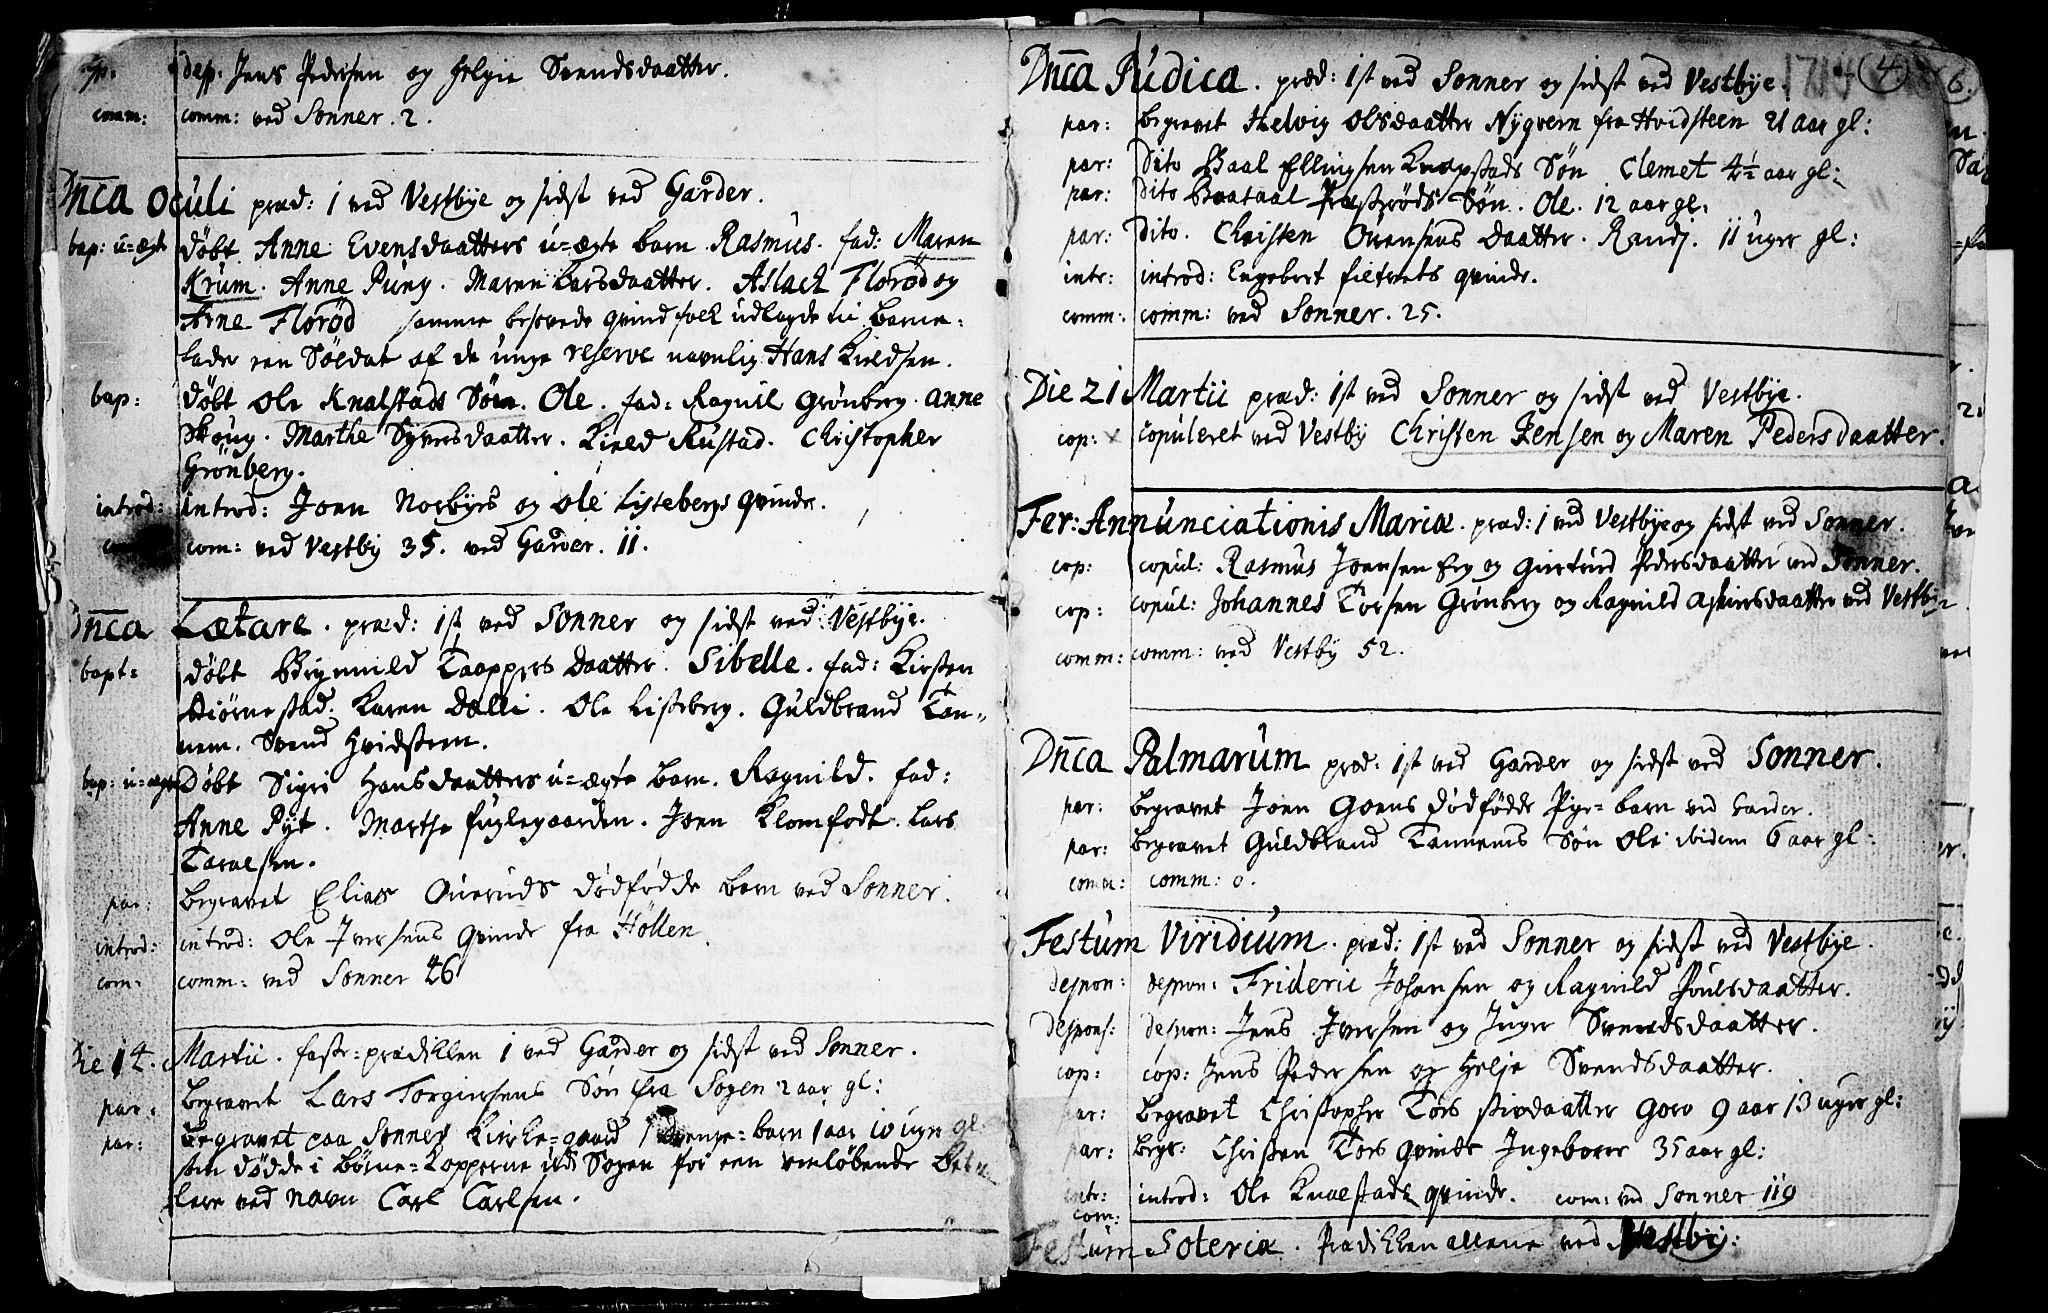 desp: Jens Pedersen og Helgie Svendsdaatter.
comm: comm: ved Sonner. 2.
Dnca Oculi præd: 1 ved Vestbye og sidst ved Garder.
bap: u=ægte døbt Anne Evensdaatters u=ægte barn Rasmus. fad: Maren
Krum. Anne Pung. Maren Larsdaatter. Aslach Florød og
Arne Florød samme besovede qvindfolk udlagde til Barne=
fader een Søldat af de unge reserve navnlig Hans Kieldsen.
bap: døbt Ole Knalstads Søn. Ole. fad: Ragnil Grønberg. Anne
Skoug. Marthe Syversdaatter. Kield Rustad. Christopher
Grönberg.
introd: introd: Joen Norbyes og Ole Listebergs qvinde.
com: ved Vestby 35. ved Garder. 11.
Dnca Lætare. præd: 1st ved Sonner og sidst ved Vestbye.
bapt: døbt Brynnild Taappers Daatter. Sibelle. fad: Kirsten
Biørnestad. Karen Dalli. Ole Listeberg. Guldbrand Tan=
nem. Svend Hvidsteen.
bap: u=ægte Døbt Sigri Hansdaatters u=ægte barn. Ragnild. fad:
Anne Pyt. Marthe Fuglegaarden. Joen Klomfodt. Lars
Taraldsen.
par: begravet Elias Oueruds dødfødde barn ved Sonner.
introd: introd: Ole Iversens qvinde fra Höllen.
com: comm: ved Sonner 46
Die 14. Martii. faste=prædikken 1 ved Garder og sidst ved Sonner.
par: begravet Lars Torgiersens Søn fra Sogen 2 aar gl:
par: begravet paa Sonner Kirke=gaard 1 drenge=barn 1 aar 10 uger gl.
som dødde i børne=Kopperne ved Sogen for een omløbende Bet
lere ved navn Carl Carlsen.
Dnca Judica. præd: 1st ved Sonner og sidst ved Vestbye. 1714 4 6.
par: begravet Helvig Olsdaatter Nygvern fra Hvidsteen 21 aar gl:
par: Dito Paal Ellingsen Knapstads Søn Clemet 4½ aar gl:
par: dito Baataal Præstrøds Søn. Ole. 12 aar gl.
par: Dito. Christen Ouensens Daatter. Randj. 11 uger gl:
intr: introd: Engebret fieltvets qvinde.
comm: comm: ved Sonner. 25.
Die 21 Martii præd: 1st ved Sonner og sidst ved Vestbye.
cop: copuleret ved Vestby Christen Jensen og Maren Pedersdaatter.
Fer: Annunciationis Mariæ. præd: 1 ved Vestbye og sidst ved Sonner.
cop: copul: Rasmus Joensen Erg og Giertrud Pedersdaatter ved Sonner.
cop: copul: Johannes Torsen Grönberg og Ragnild ved Vestby
comm: comm: ved Vestby 52.
Dnca Palmarum præd: 1st ved Garder og sidst ved Sonner.
par: begravet Joen Goens dödfödde Pige=barn ved Garder.
par: begravet Guldbrand Tannems Søn Ole ibidem 6 aar gl:
comm: comm: 0.
Festum Viridium. præd: 1st ved Sonner og sidst ved Vestbye.
despon: despon: Frideric Johansen og Ragnild Poulsdaatter.
despons: despon: Jens Iversen og Inger Svendsdaatter.
cop: cop: Jens Pedersen og Helje Svendsdaatter.
par: begravet Christopher Tørs stivdaatter Goro 9 aar 13 uger gl:
par: begr: Christen Tors qvinde Ingeborre 35 aar gl:
intr: introd: Ole Knalstads qvinde. com: ved Sonner 119
com:
Festum Soteriæ. Prædikken allene ved Vestby: